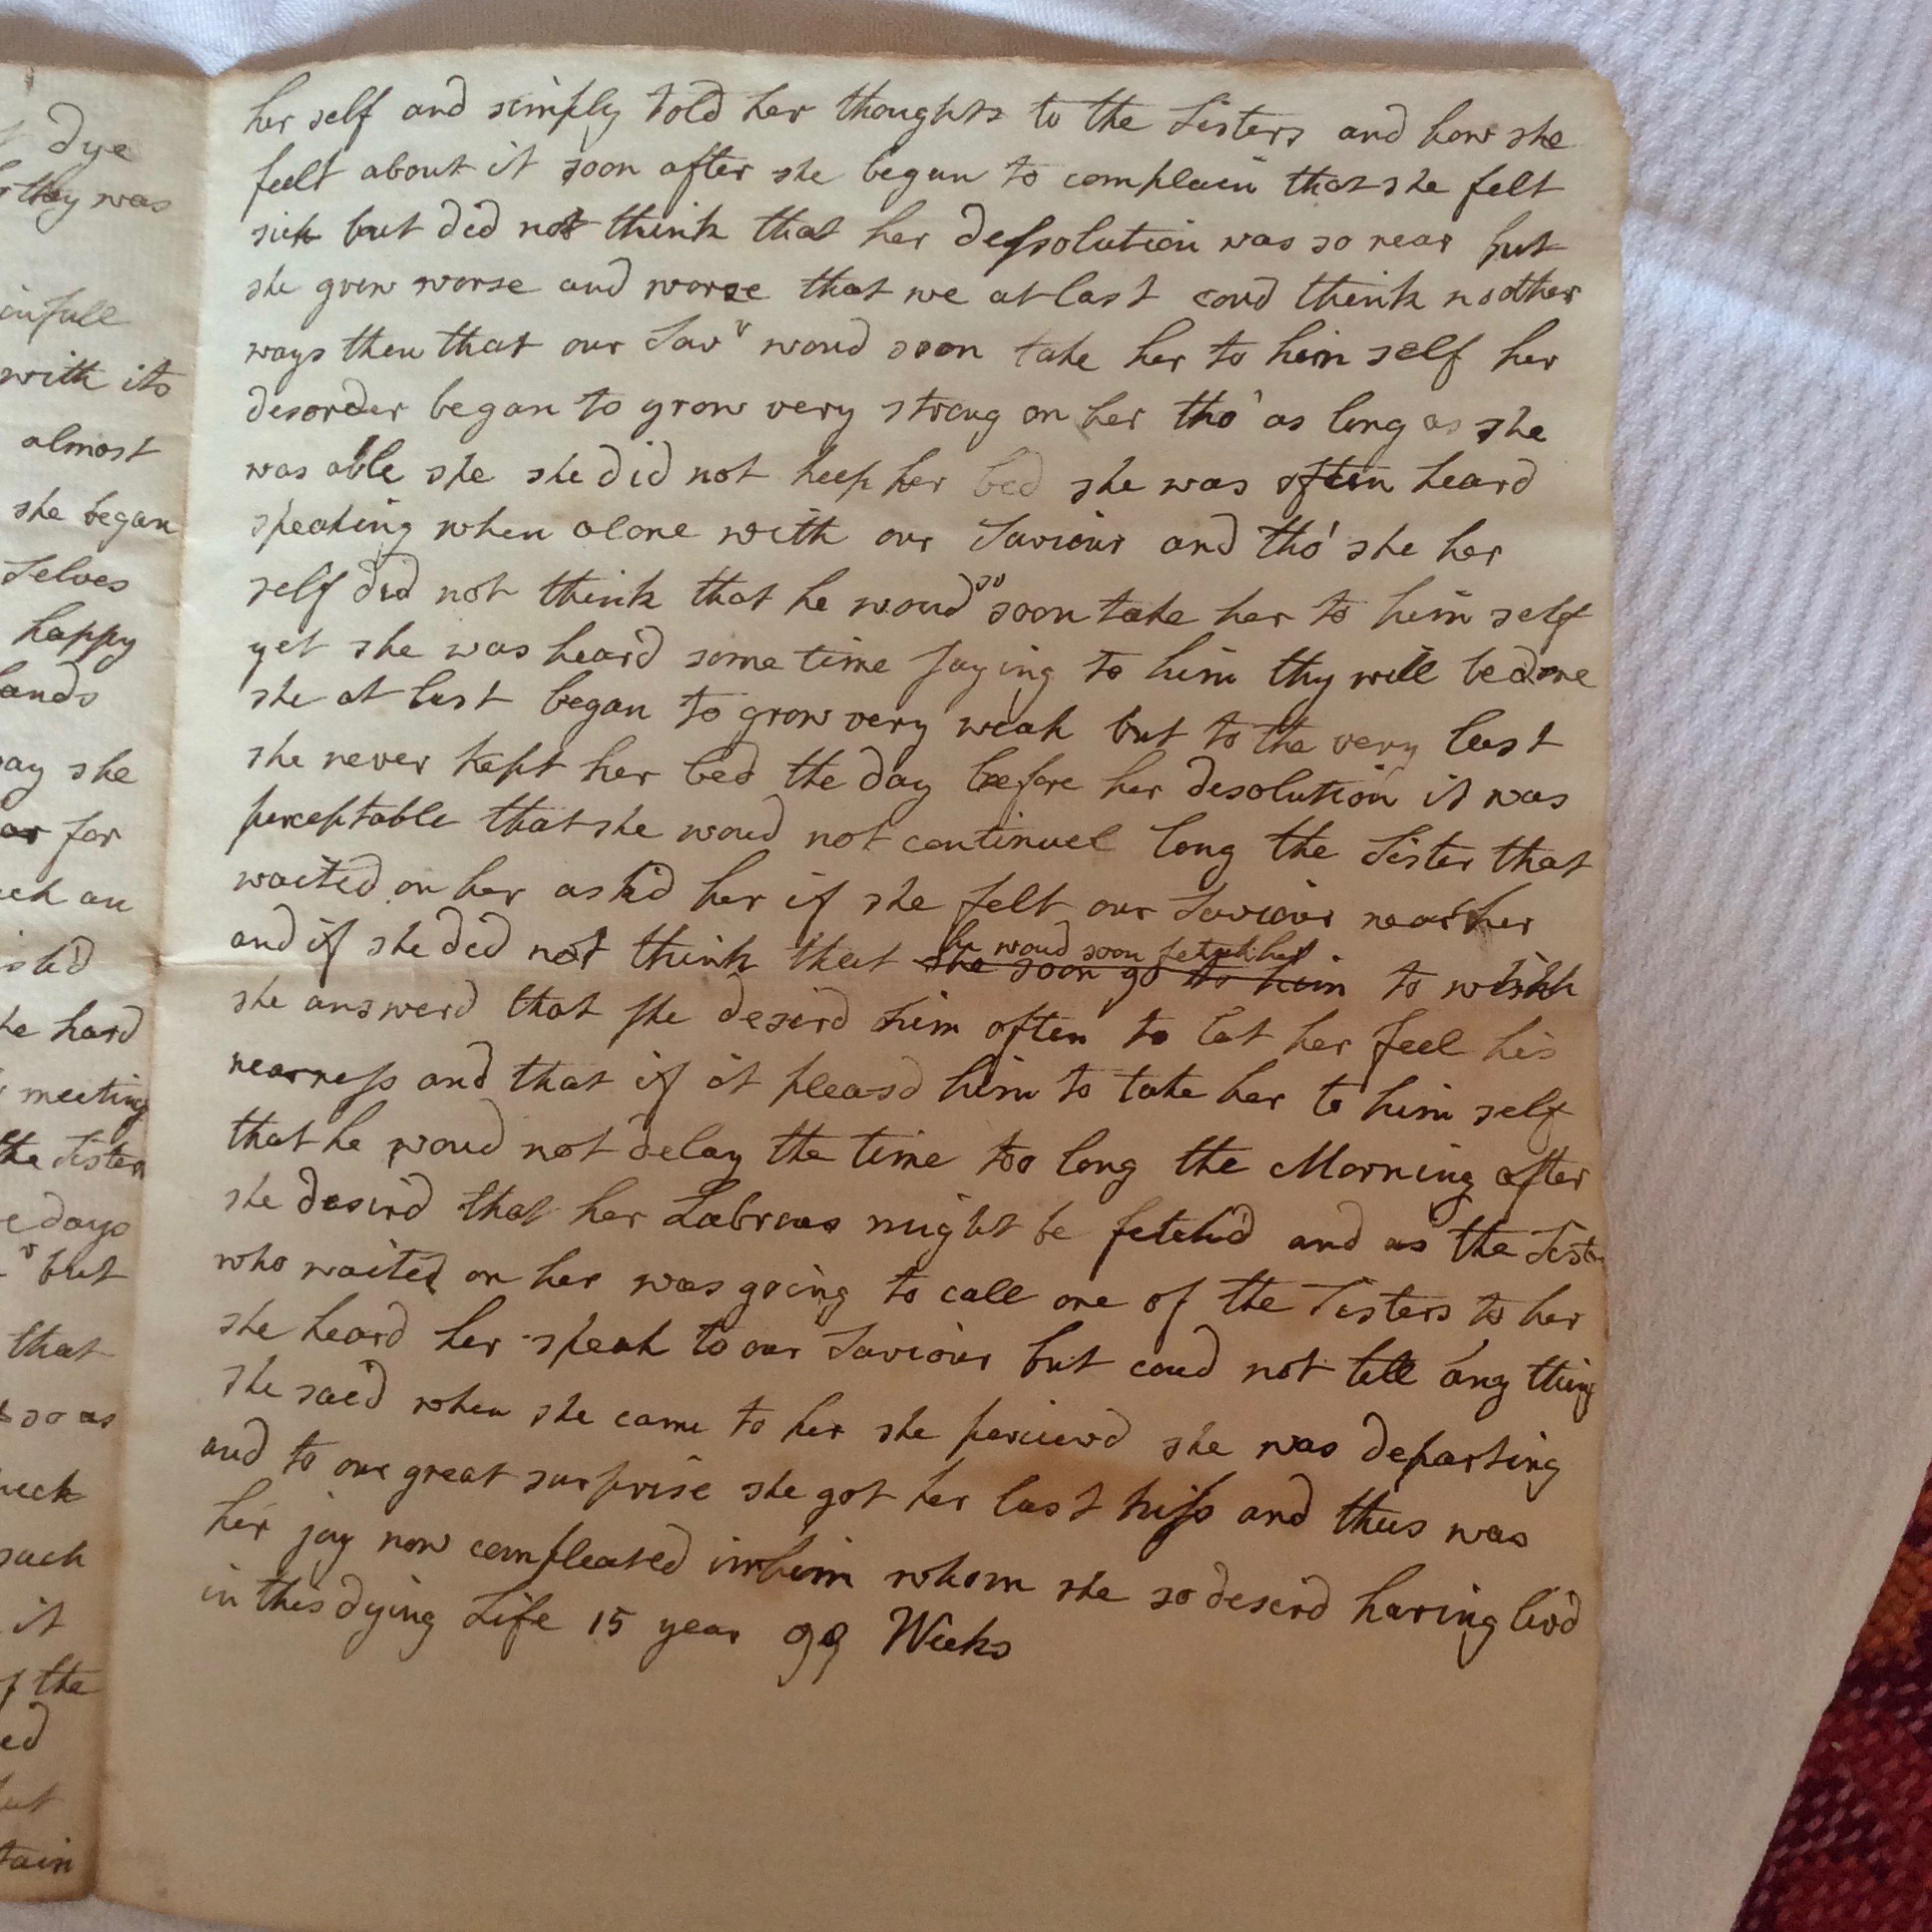 dye
they was
infull
with its
almost
she began
Selves
happy
ay she
for
ch an
he hard
meeting
the Sister
days
but
that
so as
such
it
the
her self and simply told her thoughts to the Sisters and how she
feelt about it soon after she began to complain that she felt
sick but did not think that her dessolution was so near but
she grow worse and worse that we at last coud think no other
ways then that our Savr woud soon take her to him self her
desorder began to grow very strong on her tho' as long as she
was able she she did not keep her bed she was often heard
speaking when alone with our Saviour and tho' she her
self did not think that he woud so soon take her to him self
yet she was heard some time saying to him thy will be done
she at last began to grow very weak but to the very last
she never kept her bed the day before her desolution it was
perceptable that she woud not continuel long the Sister that
waited on her ask'd her if she felt our Saviour near her
and if she did not think that he woud soon fetch her she soon go to him to wish
she answerd that she desird him often to let her feel his
nearness and that if it pleasd him to take her to him self
that he woud not delay the time too long the Morning after
she desird that her Labress might be fetch'd and as the Sister
who waited on her was going to call one of the Sisters to her
she heard her speak to our Saviour but coud not tell any thing
she said when she came to her she perciev'd she was departing
and to our great surprise she got her last kiss and thus was
her joy now compleated in him whom she so desird having liv'd
in this dying Life 15 year 99 Weeks